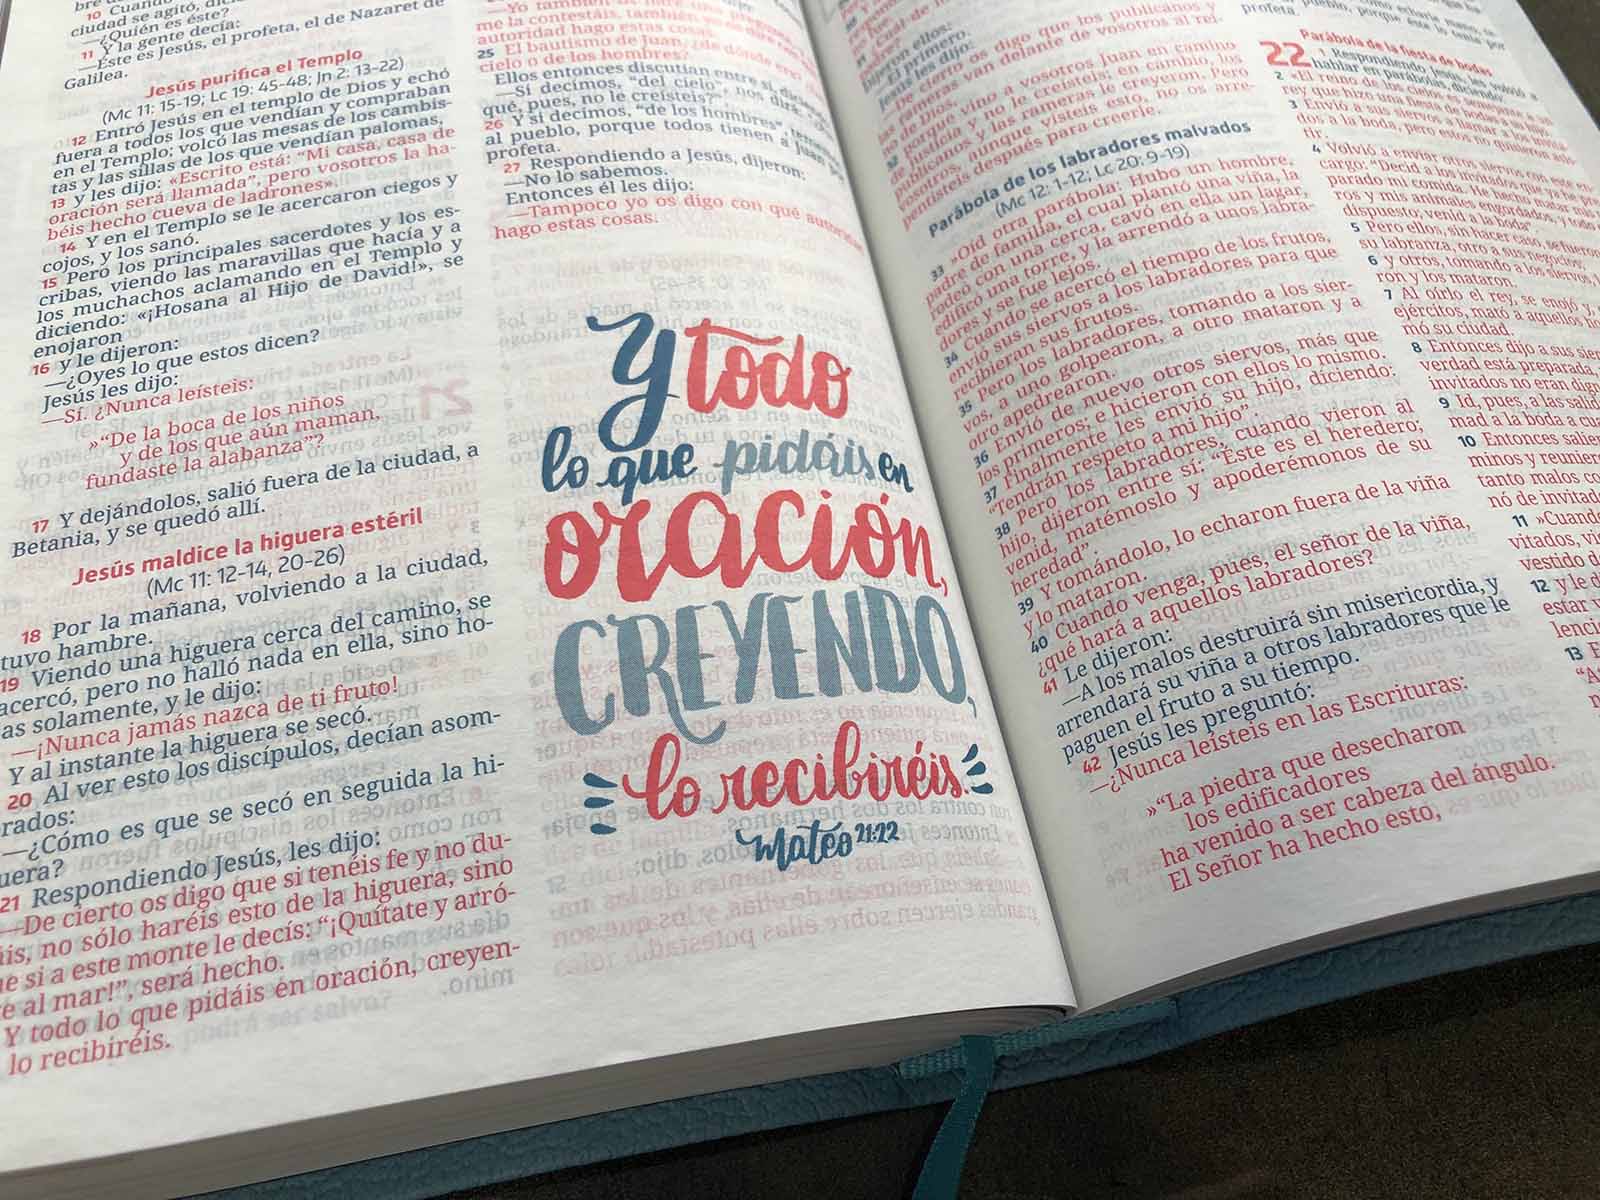 10 Cuando
ciudad se agitó,
—¿Quién es éste?
11 Y la gente decía:
—Éste es Jesús, el profeta, el de Nazaret de
Galilea.
Jesús purifica el Templo
(Mc 11: 15-19; Lc 19: 45-48; Jn 2: 13-22)
12 Entró Jesús en el templo de Dios y echó
fuera a todos los que vendían y compraban
en el Templo; volcó las mesas de los cambis-
tas y las sillas de los que vendían palomas,
13 y les dijo: «Escrito está: “Mi casa, casa de
oración será llamada”, pero vosotros la ha-
béis hecho cueva de ladrones».
14 Y en el Templo se le acercaron ciegos y
cojos, y los sanó.
15 Pero los principales sacerdotes y los es-
cribas, viendo las maravillas que hacía y a
los muchachos aclamando en el Templo y
diciendo: «¡Hosana al Hijo de David!», se
enojaron
16 y le dijeron:
—¿Oyes lo que estos dicen?
Jesús les dijo:
—Sí. ¿Nunca leísteis:
»“De la boca de los niños
y de los que aún maman,
fundaste la alabanza”?
17 Y dejándolos, salió fuera de la ciudad, a
Betania, y se quedó allí.
Jesús maldice la higuera estéril
(Mc 11: 12-14, 20-26)
18 Por la mañana, volviendo a la ciudad,
tuvo hambre.
19 Viendo una higuera cerca del camino, se
acercó, pero no halló nada en ella, sino ho-
as solamente, y le dijo:
—¡Nunca jamás nazca de ti fruto!
Y al instante la higuera se secó.
20 Al ver esto los discípulos, decían asom-
rados:
—¿Cómo es que se secó en seguida la hi-
uera?
21 Respondiendo Jesús, les dijo:
—De cierto os digo que si tenéis fe y no du-
áis, no sólo haréis esto de la higuera, sino
e si a este monte le decís: “¡Quítate y arró-
e al mar!”, será hecho.
Y todo lo que pidáis en oración, creyen-
lo recibiréis.
me la contestáis, también
autoridad hago estas cosas.
25 El bautismo de Juan, ¿de dónde era?
cielo o de los hombres?
Ellos entonces discutían entre sí, diciendo:
—Si decimos, “del cielo”, nos dirá:
qué, pues, no le creísteis?”
26 Y si decimos, “de los hombres”, tememos
al pueblo, porque todos tienen a Juan por
profeta.
27 Respondiendo a Jesús, dijeron:
—No lo sabemos.
Entonces él les dijo:
—Tampoco yo os digo con qué autoridad
hago estas cosas.
Y todo
lo que pidáis en
oración,
CREYENDO,
lo recibiréis.
Mateo 21:22
dijeron ellos:
—El primero.
Jesús les dijo:
—De cierto os digo que los publicanos y
rameras van delante de vosotros al rei-
no de Dios,
porque vino a vosotros Juan en camino
justicia y no le creísteis; en cambio, los
publicanos y las rameras le creyeron. Pero
vosotros, aunque visteis esto, no os arre-
pentisteis después para creerle.
Parábola de los labradores malvados
(Mc 12: 1-12; Lc 20: 9-19)
33 »Oíd otra parábola: Hubo un hombre,
padre de familia, el cual plantó una viña, la
rodeó con una cerca, cavó en ella un lagar,
edificó una torre, y la arrendó a unos labra-
dores y se fue lejos.
34 Cuando se acercó el tiempo de los frutos,
envió sus siervos a los labradores para que
recibieran sus frutos.
35 Pero los labradores, tomando a los sier-
vos, a uno golpearon, a otro mataron y a
otro apedrearon.
36 Envió de nuevo otros siervos, más que
los primeros; e hicieron con ellos lo mismo.
37 Finalmente les envió su hijo, diciendo:
“Tendrán respeto a mi hijo”.
38 Pero los labradores, cuando vieron al
hijo, dijeron entre sí: “Éste es el heredero;
venid, matémoslo y apoderémonos de su
heredad”.
39 Y tomándolo, lo echaron fuera de la viña
y lo mataron.
40 Cuando venga, pues, el señor de la viña,
¿qué hará a aquellos labradores?
41 Le dijeron:
—A los malos destruirá sin misericordia, y
arrendará su viña a otros labradores que le
paguen el fruto a su tiempo.
42 Jesús les preguntó:
—¿Nunca leísteis en las Escrituras:
»“La piedra que desecharon
los edificadores
ha venido a ser cabeza del ángulo.
El Señor ha hecho esto,
profeta.
Parábola de la fiesta de bodas
22 1 Respondiendo Jesús, les volvió a
hablar en parábolas, diciendo:
2 «El reino de los cielos es semejante a un
rey que hizo una fiesta de bodas a su hijo.
3 Envió a sus siervos a llamar a los invita-
dos a la boda, pero estos no quisieron asis-
tir.
4 Volvió a enviar otros siervos con este en-
cargo: “Decid a los invitados que ya he pre-
parado mi comida. He hecho matar mis
ros y mis animales engordados, y todo está
dispuesto; venid a la boda”.
5 Pero ellos, sin hacer caso, se fueron:
su labranza, otro a sus negocios;
6 y otros, tomando a los siervos,
ron y los mataron.
7 Al oírlo el rey, se enojó y,
ejércitos, mató a aquellos ho
mó su ciudad.
8 Entonces dijo a sus sier
verdad está preparada,
invitados no eran dign
9 Id, pues, a las salid
mad a la boda a cua
10 Entonces salien
minos y reuniero
tanto malos co
nó de invitado
11 »Cuando
vitados, vi
vestido d
12 y le d
estar
lenci
13